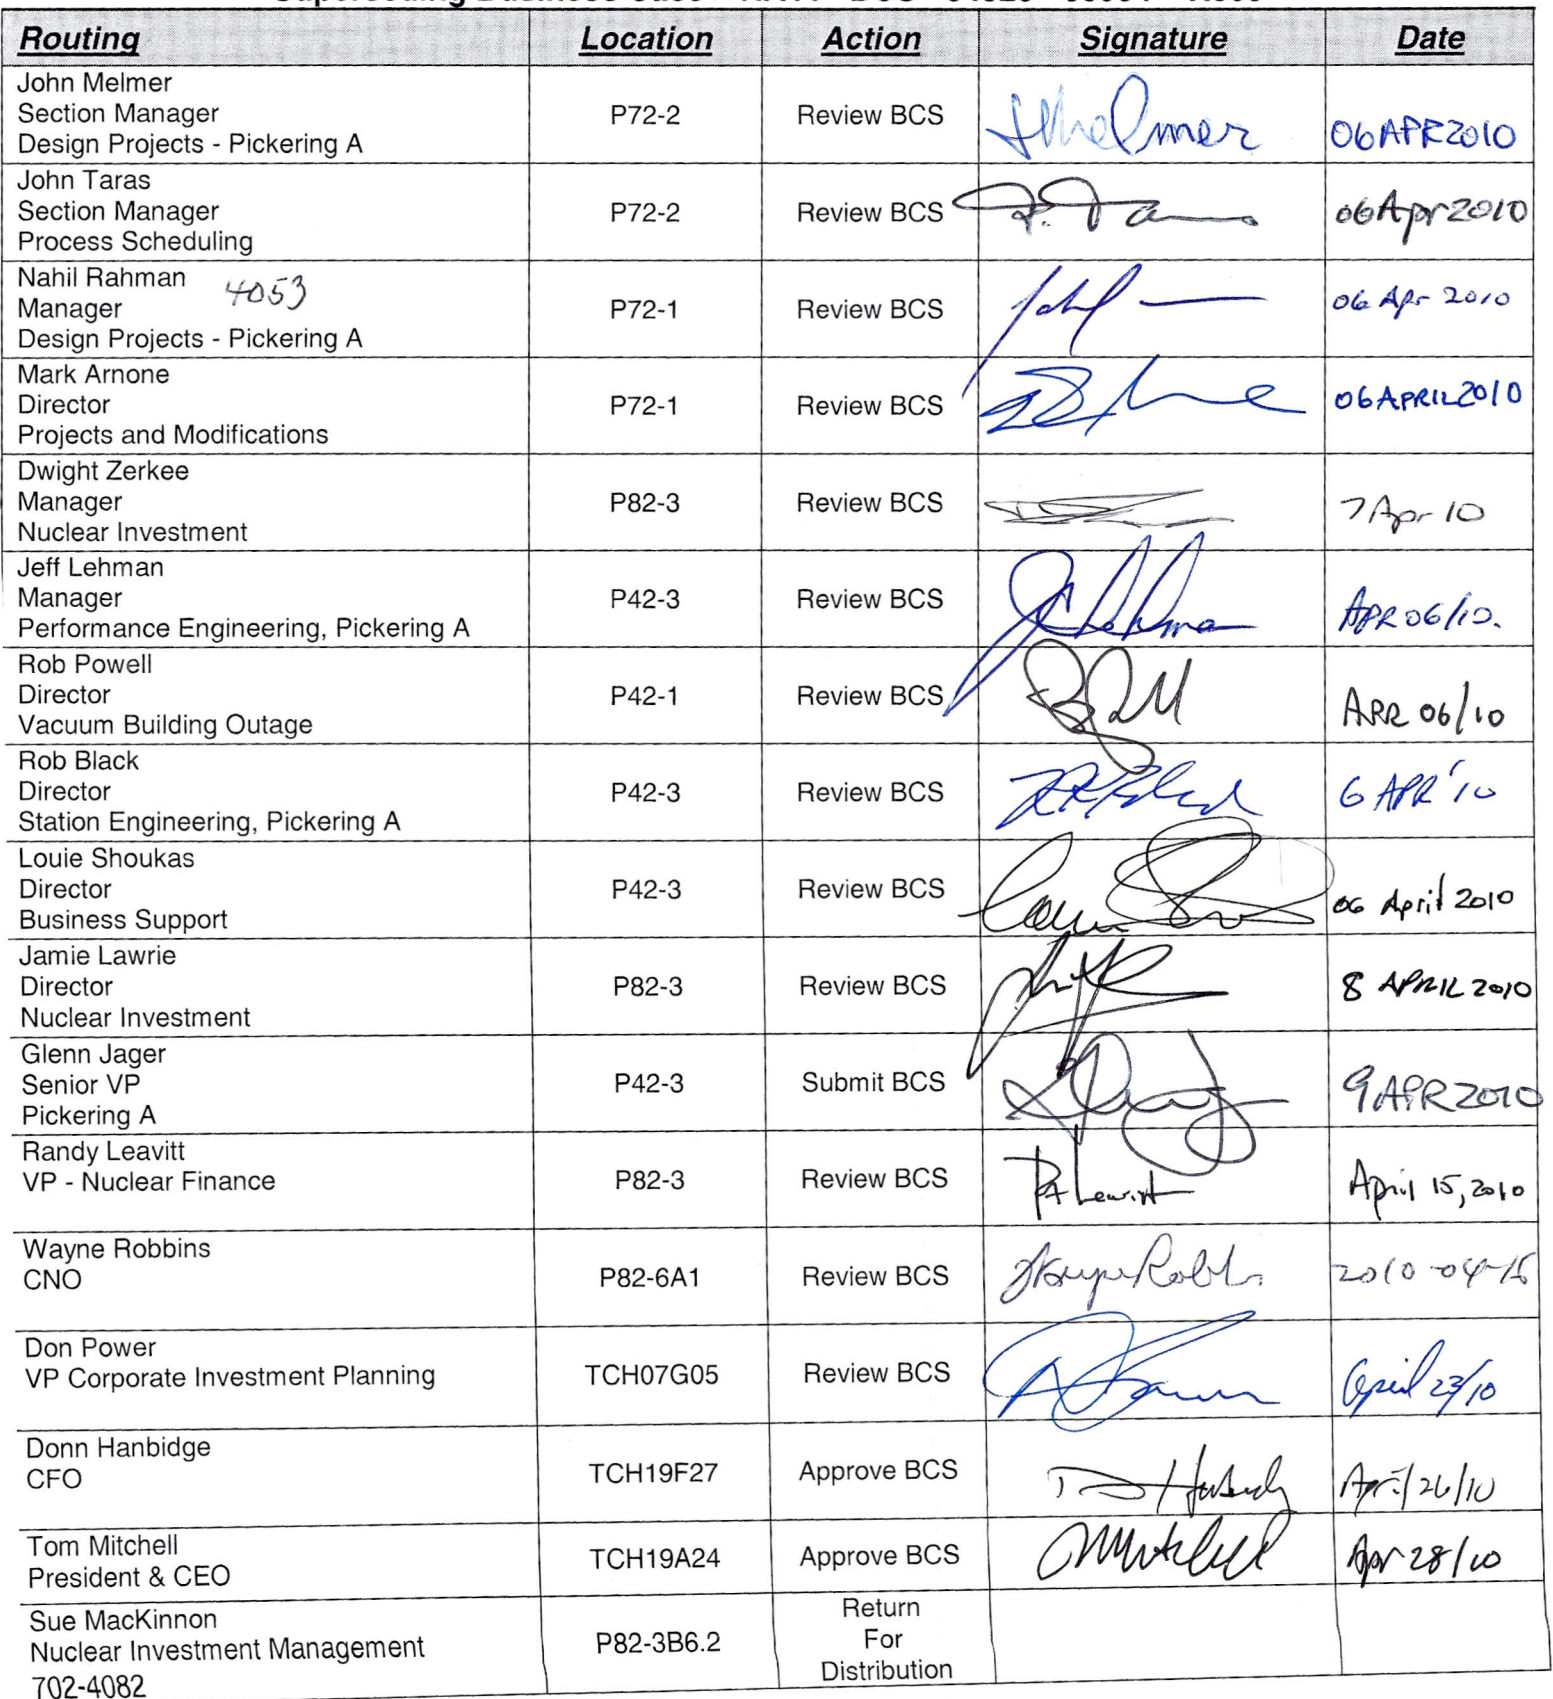 Routing Location Action Signature Date
John Melmer
Section Manager
Design Projects - Pickering A
P72-2 Review BCS 06APR2010
John Taras
Section Manager
Process Scheduling
P72-2 Review BCS 06Apr2010
Nahil Rahman
Manager 4053
Design Projects - Pickering A
P72-1 Review BCS 06 Apr 2010
Mark Arnone
Director
Projects and Modifications
P72-1 Review BCS 06APRIL2010
Dwight Zerkee
Manager
Nuclear Investment
P82-3 Review BCS 7 Apr 10
Jeff Lehman
Manager
Performance Engineering, Pickering A
P42-3 Review BCS APR06/10.
Rob Powell
Director
Vacuum Building Outage
P42-1 Review BCS APR 06/10
Rob Black
Director
Station Engineering, Pickering A
P42-3 Review BCS 6 APR '10
Louie Shoukas
Director
Business Support
P42-3 Review BCS 06 April 2010
Jamie Lawrie
Director
Nuclear Investment
P82-3 Review BCS 8 APRIL 2010
Glenn Jager
Senior VP
Pickering A
P42-3 Submit BCS 9 APR 2010
Randy Leavitt
VP - Nuclear Finance
P82-3 Review BCS April 15, 2010
Wayne Robbins
CNO
P82-6A1 Review BCS
Don Power
VP Corporate Investment Planning
TCH07G05 Review BCS April 23/10
Donn Hanbidge
CFO
TCH19F27 Approve BCS April/26/10
Tom Mitchell
President & CEO
TCH19A24 Approve BCS Apr 28/10
Sue MacKinnon
Nuclear Investment Management
702-4082
P82-3B6.2 Return
For
Distribution